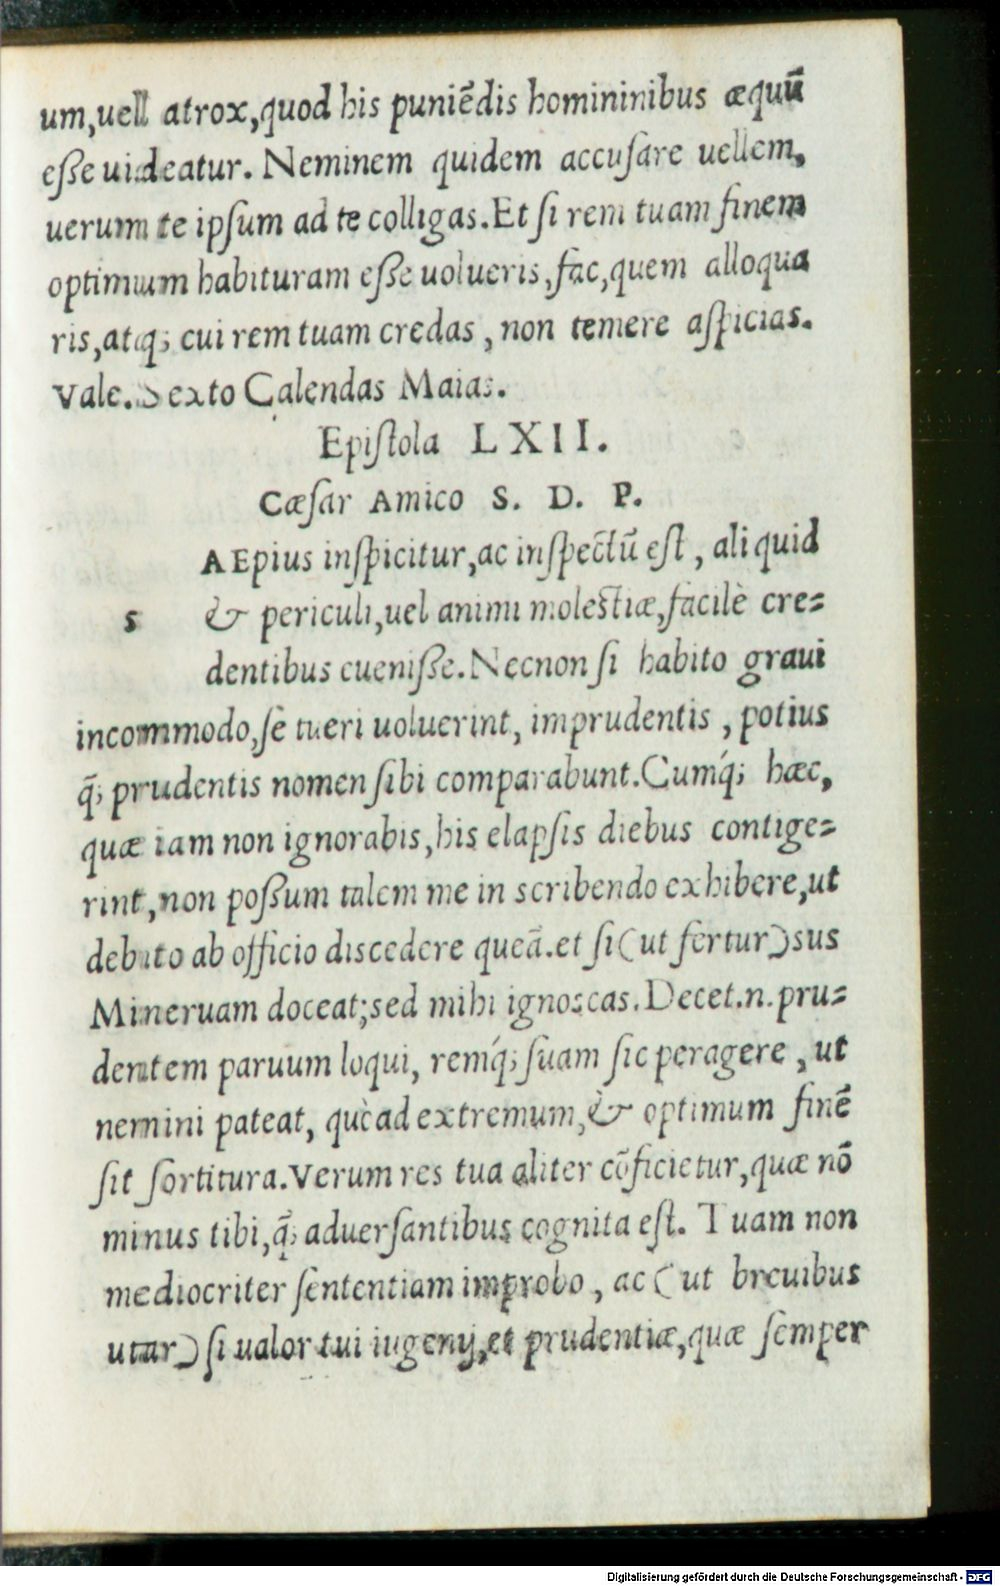 um,uell atrox,quod his puniēdis homininibus æquū
eſſe uideatur. Neminem quidem accuſare uellem,
uerum te ipſum ad te colligas. Et ſi rem tuam finem
optimum habituram eſſe uolueris, fac, quem alloqua
ris, atq; cui rem tuam credas, non temere aſpicias.
Vale. Sexto Calendas Maias.
Epiſtola LXII.
Cæſar Amico S. D. P.
AEpius inſpicitur, ac inſpectū eſt, aliquid
s & periculi, uel animi moleſtiæ, facilè cre=
dentibus eueniſſe. Necnon ſi habito graui
incommodo, ſè tueri uoluerint, imprudentis, potius
q̃; prudentis nomen ſibi comparabunt. Cumq́; hæc,
quæ iam non ignorabis, his elapſis diebus contige=
rint, non poſſum talem me in scribendo exhibere, ut
debito ab officio discedere queā. et ſi (ut fertur) sus
Mineruam doceat; sed mihi ignoscas. Decet.n. pru=
dentem paruum loqui, remq́; ſuam ſic peragere, ut
nemini pateat, què ad extremum, & optimum finē
ſit ſortitura. Verum res tua aliter cōficietur, quæ nō
minus tibi, q̃; aduerſantibus cognita eſt. Tuam non
mediocriter ſententiam improbo, ac (ut breuibus
utar) ſi ualor tui iugenij, et prudentiæ, quæ ſemper
Digitalisierung gefördert durch die Deutsche Forschungsgemeinschaft - DFG